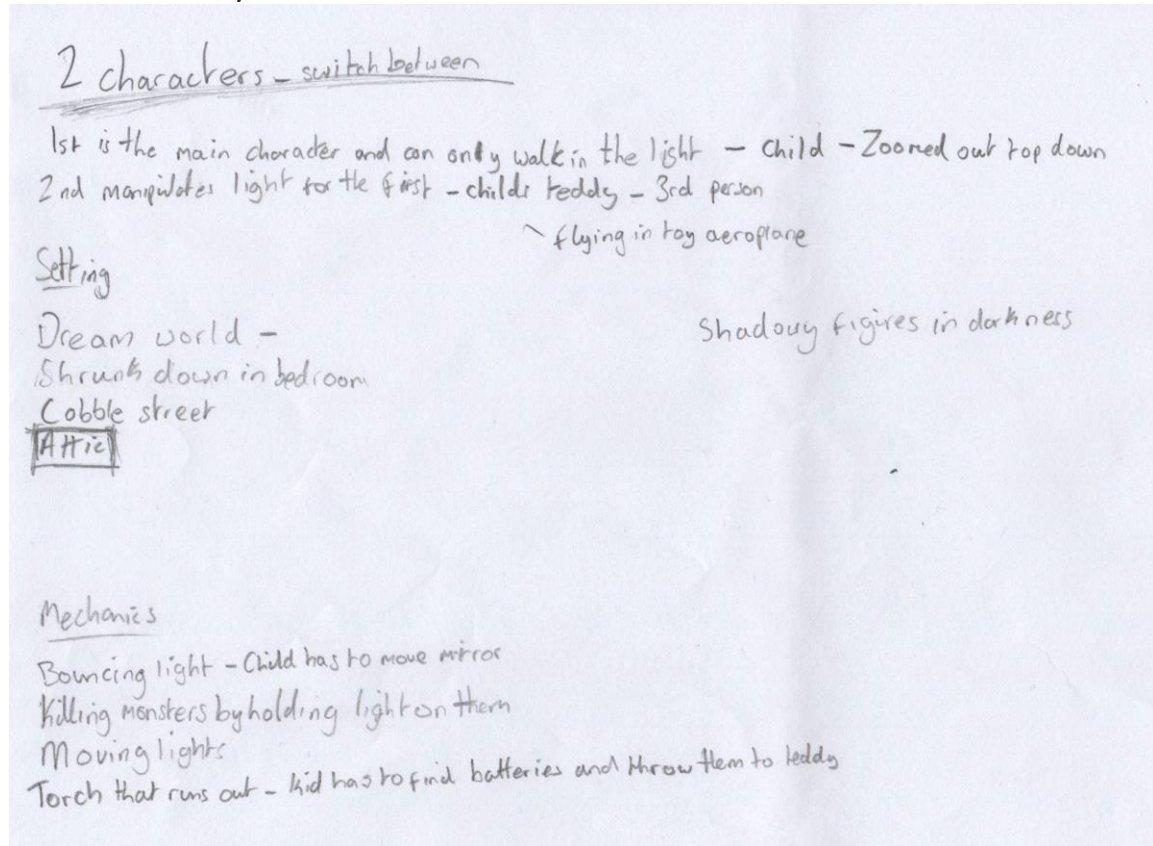 2 characters - switch between
1st is the main character and can only walk in the light - Child - Zoomed out top down
2nd manipulates light for the first - childs teddy - 3rd person
flying in toy aeroplane
Setting
Shadowy figires in darkness
Dream world -
Shrunk down in bedroom
Cobble street
Attic
Mechanics
Bouncing light - Child has to move mirror
Killing monsters by holding light on them
Moving lights
Torch that runs out - kid has to find batteries and throw them to teddy